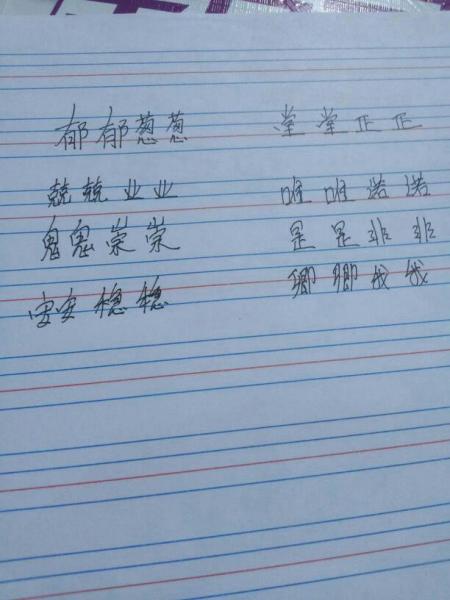 郁郁葱葱 堂堂正正
兢兢业业 唯唯诺诺
鬼鬼祟祟 是是非非
安安稳稳 卿卿我我